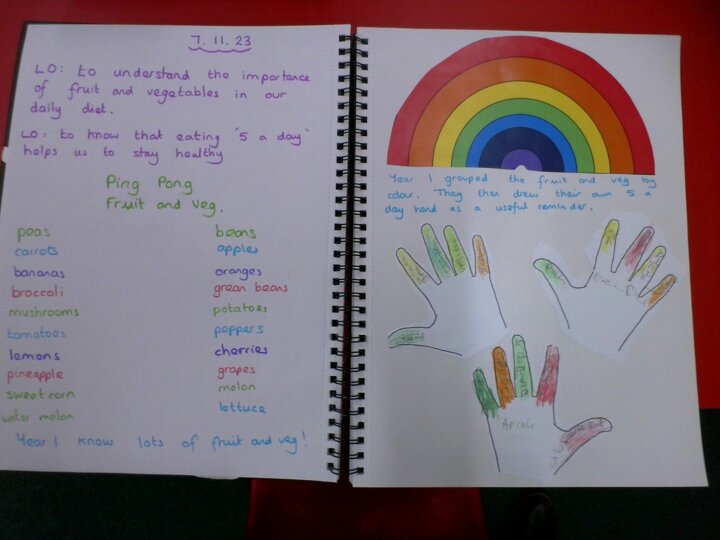 7.11.23
LO: to understand the importance
of fruit and vegetables in our
daily diet.
LO: to know that eating '5 a day'
helps us to stay healthy
Ping Pong
Fruit and Veg.
peas beans
carrots apples
bananas oranges
broccoli green beans
mushrooms potatoes
tomatoes peppers
lemons cherries
pineapple grapes
sweetcorn melon
water melon lettuce
Year 1 know lots of fruit and veg!
Year 1 grouped the fruit and veg by
colour. They then drew their own 5 a
day hand as a useful reminder.